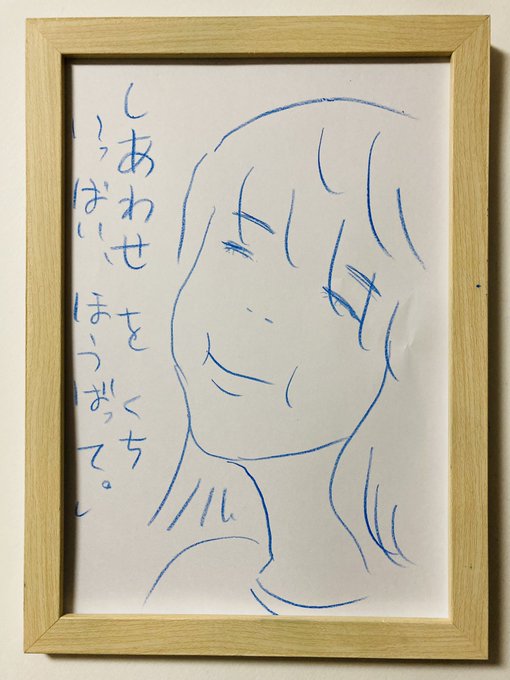 しあわせ を くち
いっぱい、 ほうばって。